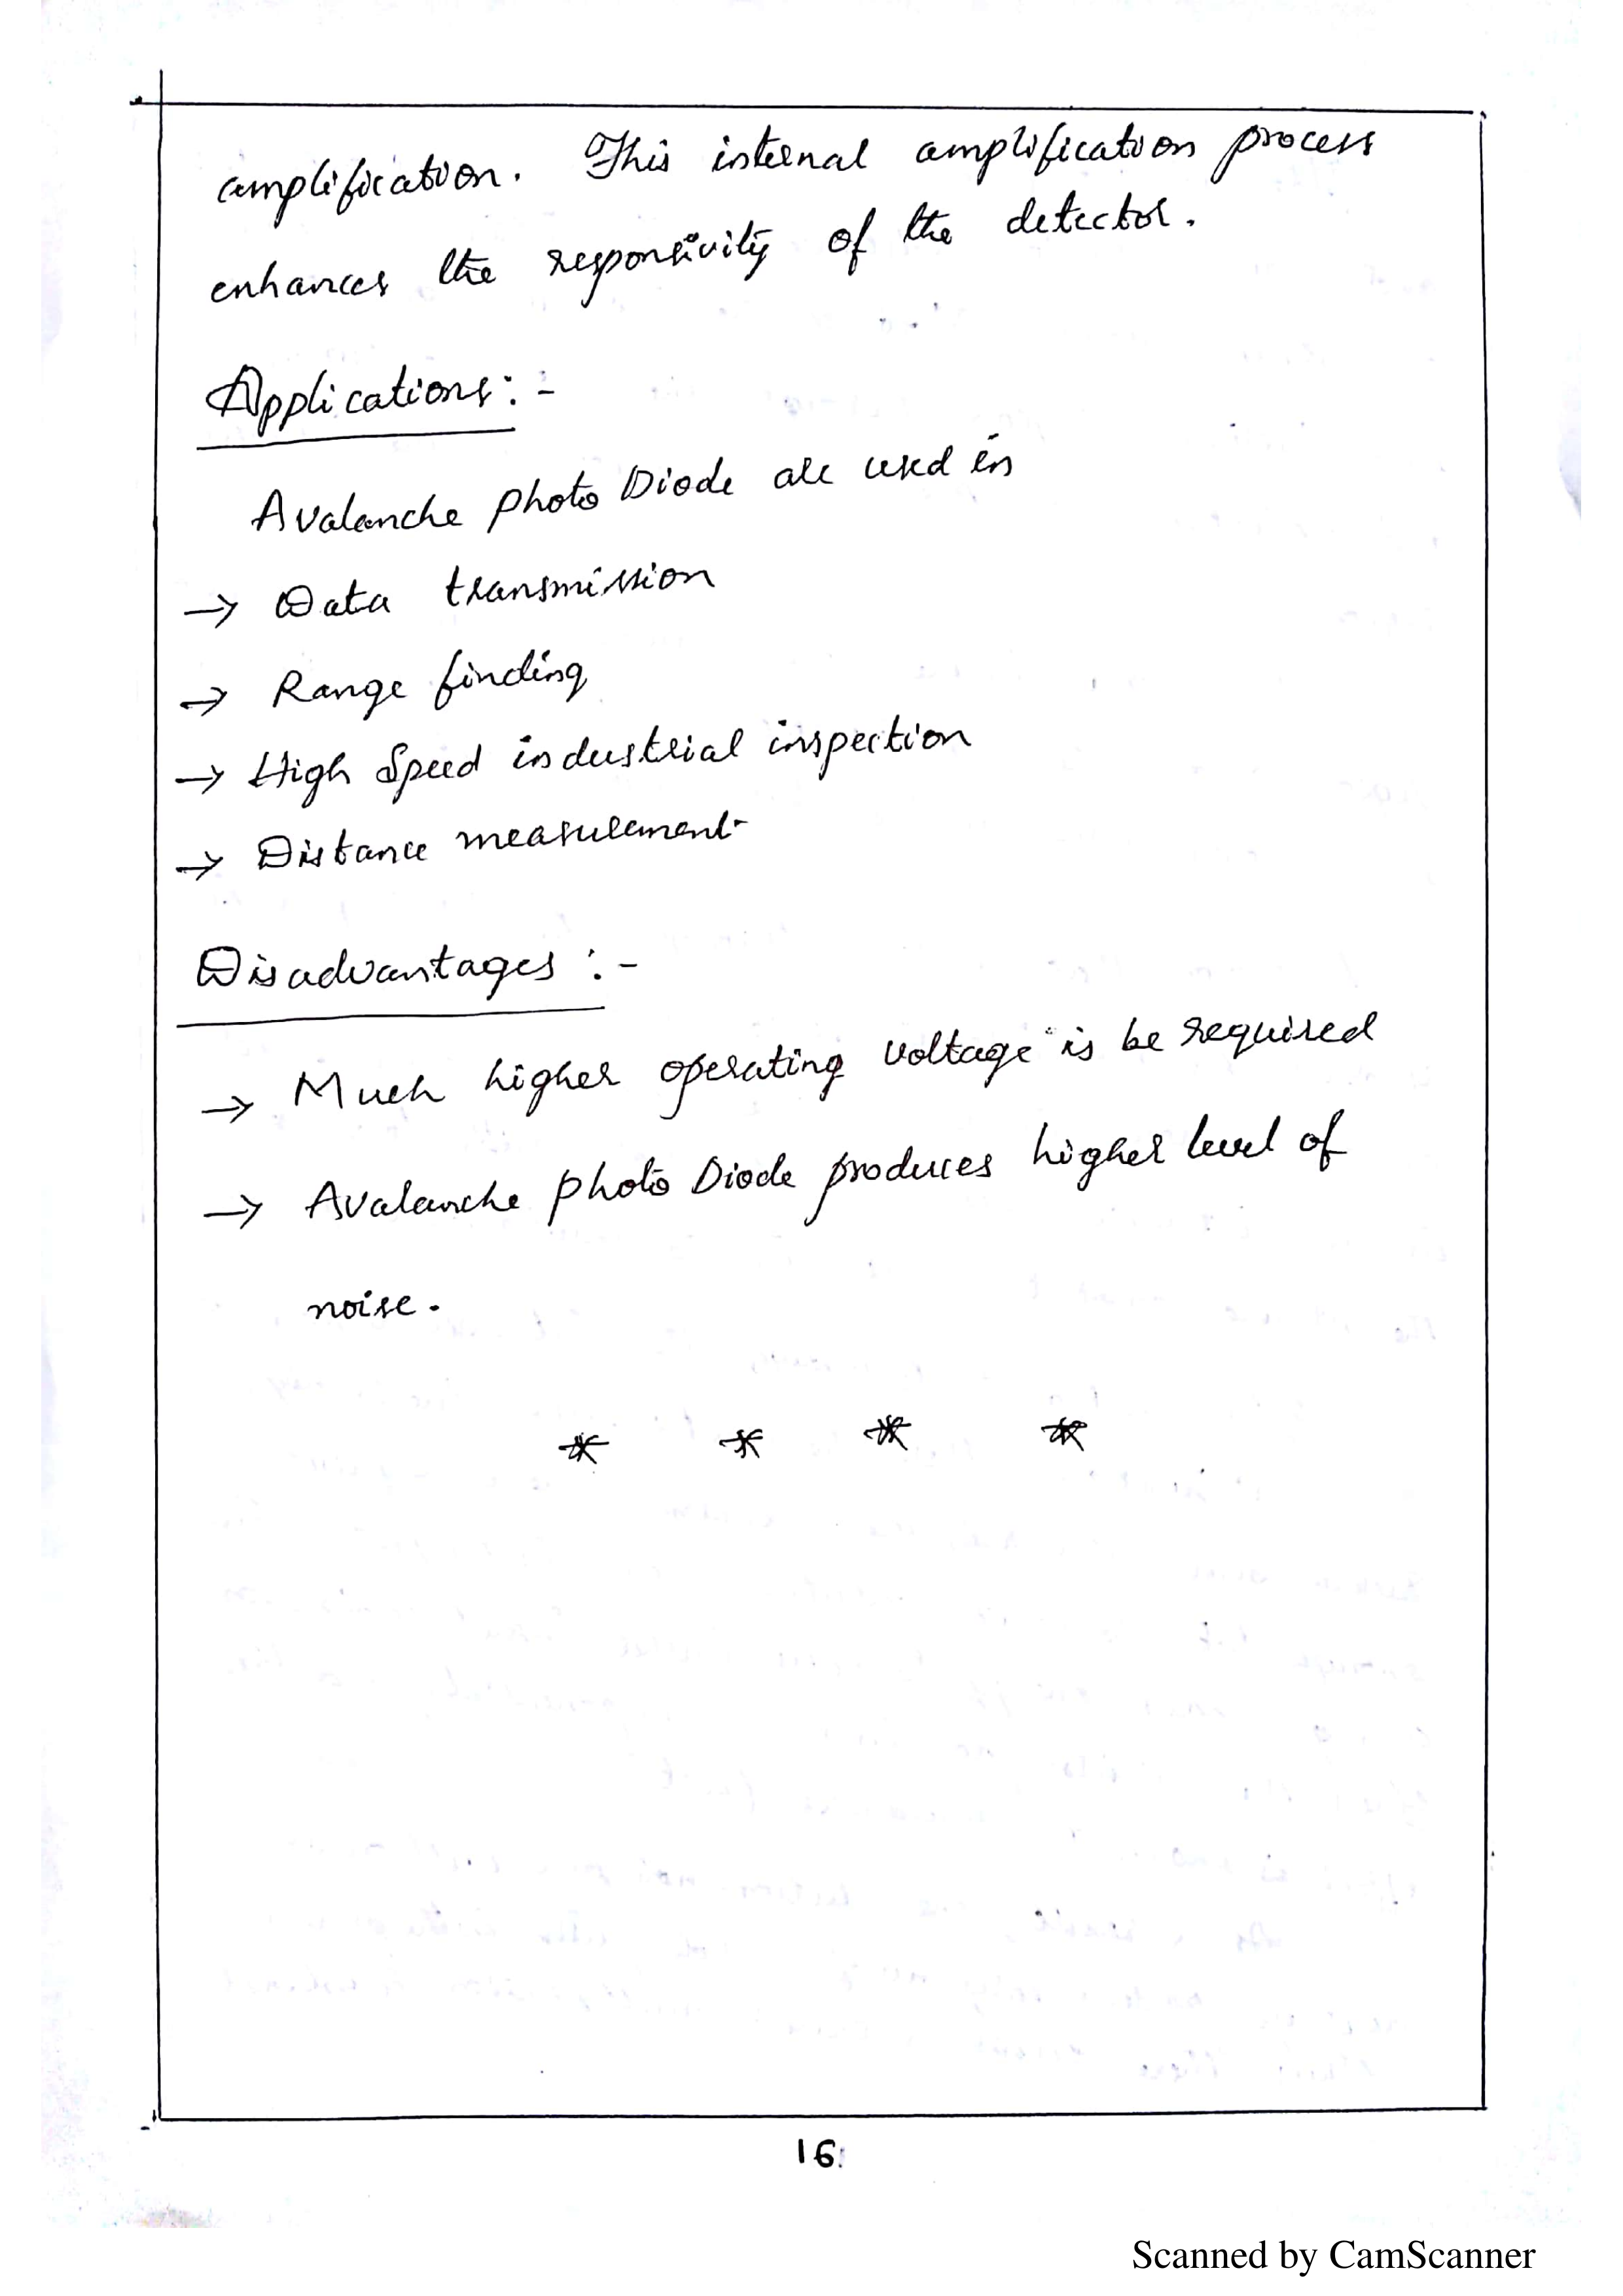 amplification. This internal amplification process
enhances the responsivity of the detector.
Applications:-
Avalanche Photo Diode are used in
→ Data transmission
→ Range finding
→ High Speed industrial inspection
→ Distance measurement
Disadvantages :-
→ Much higher operating voltage is be required
→ Avalanche photo Diode produces higher level of
noise.
* * * *
16
Scanned by CamScanner